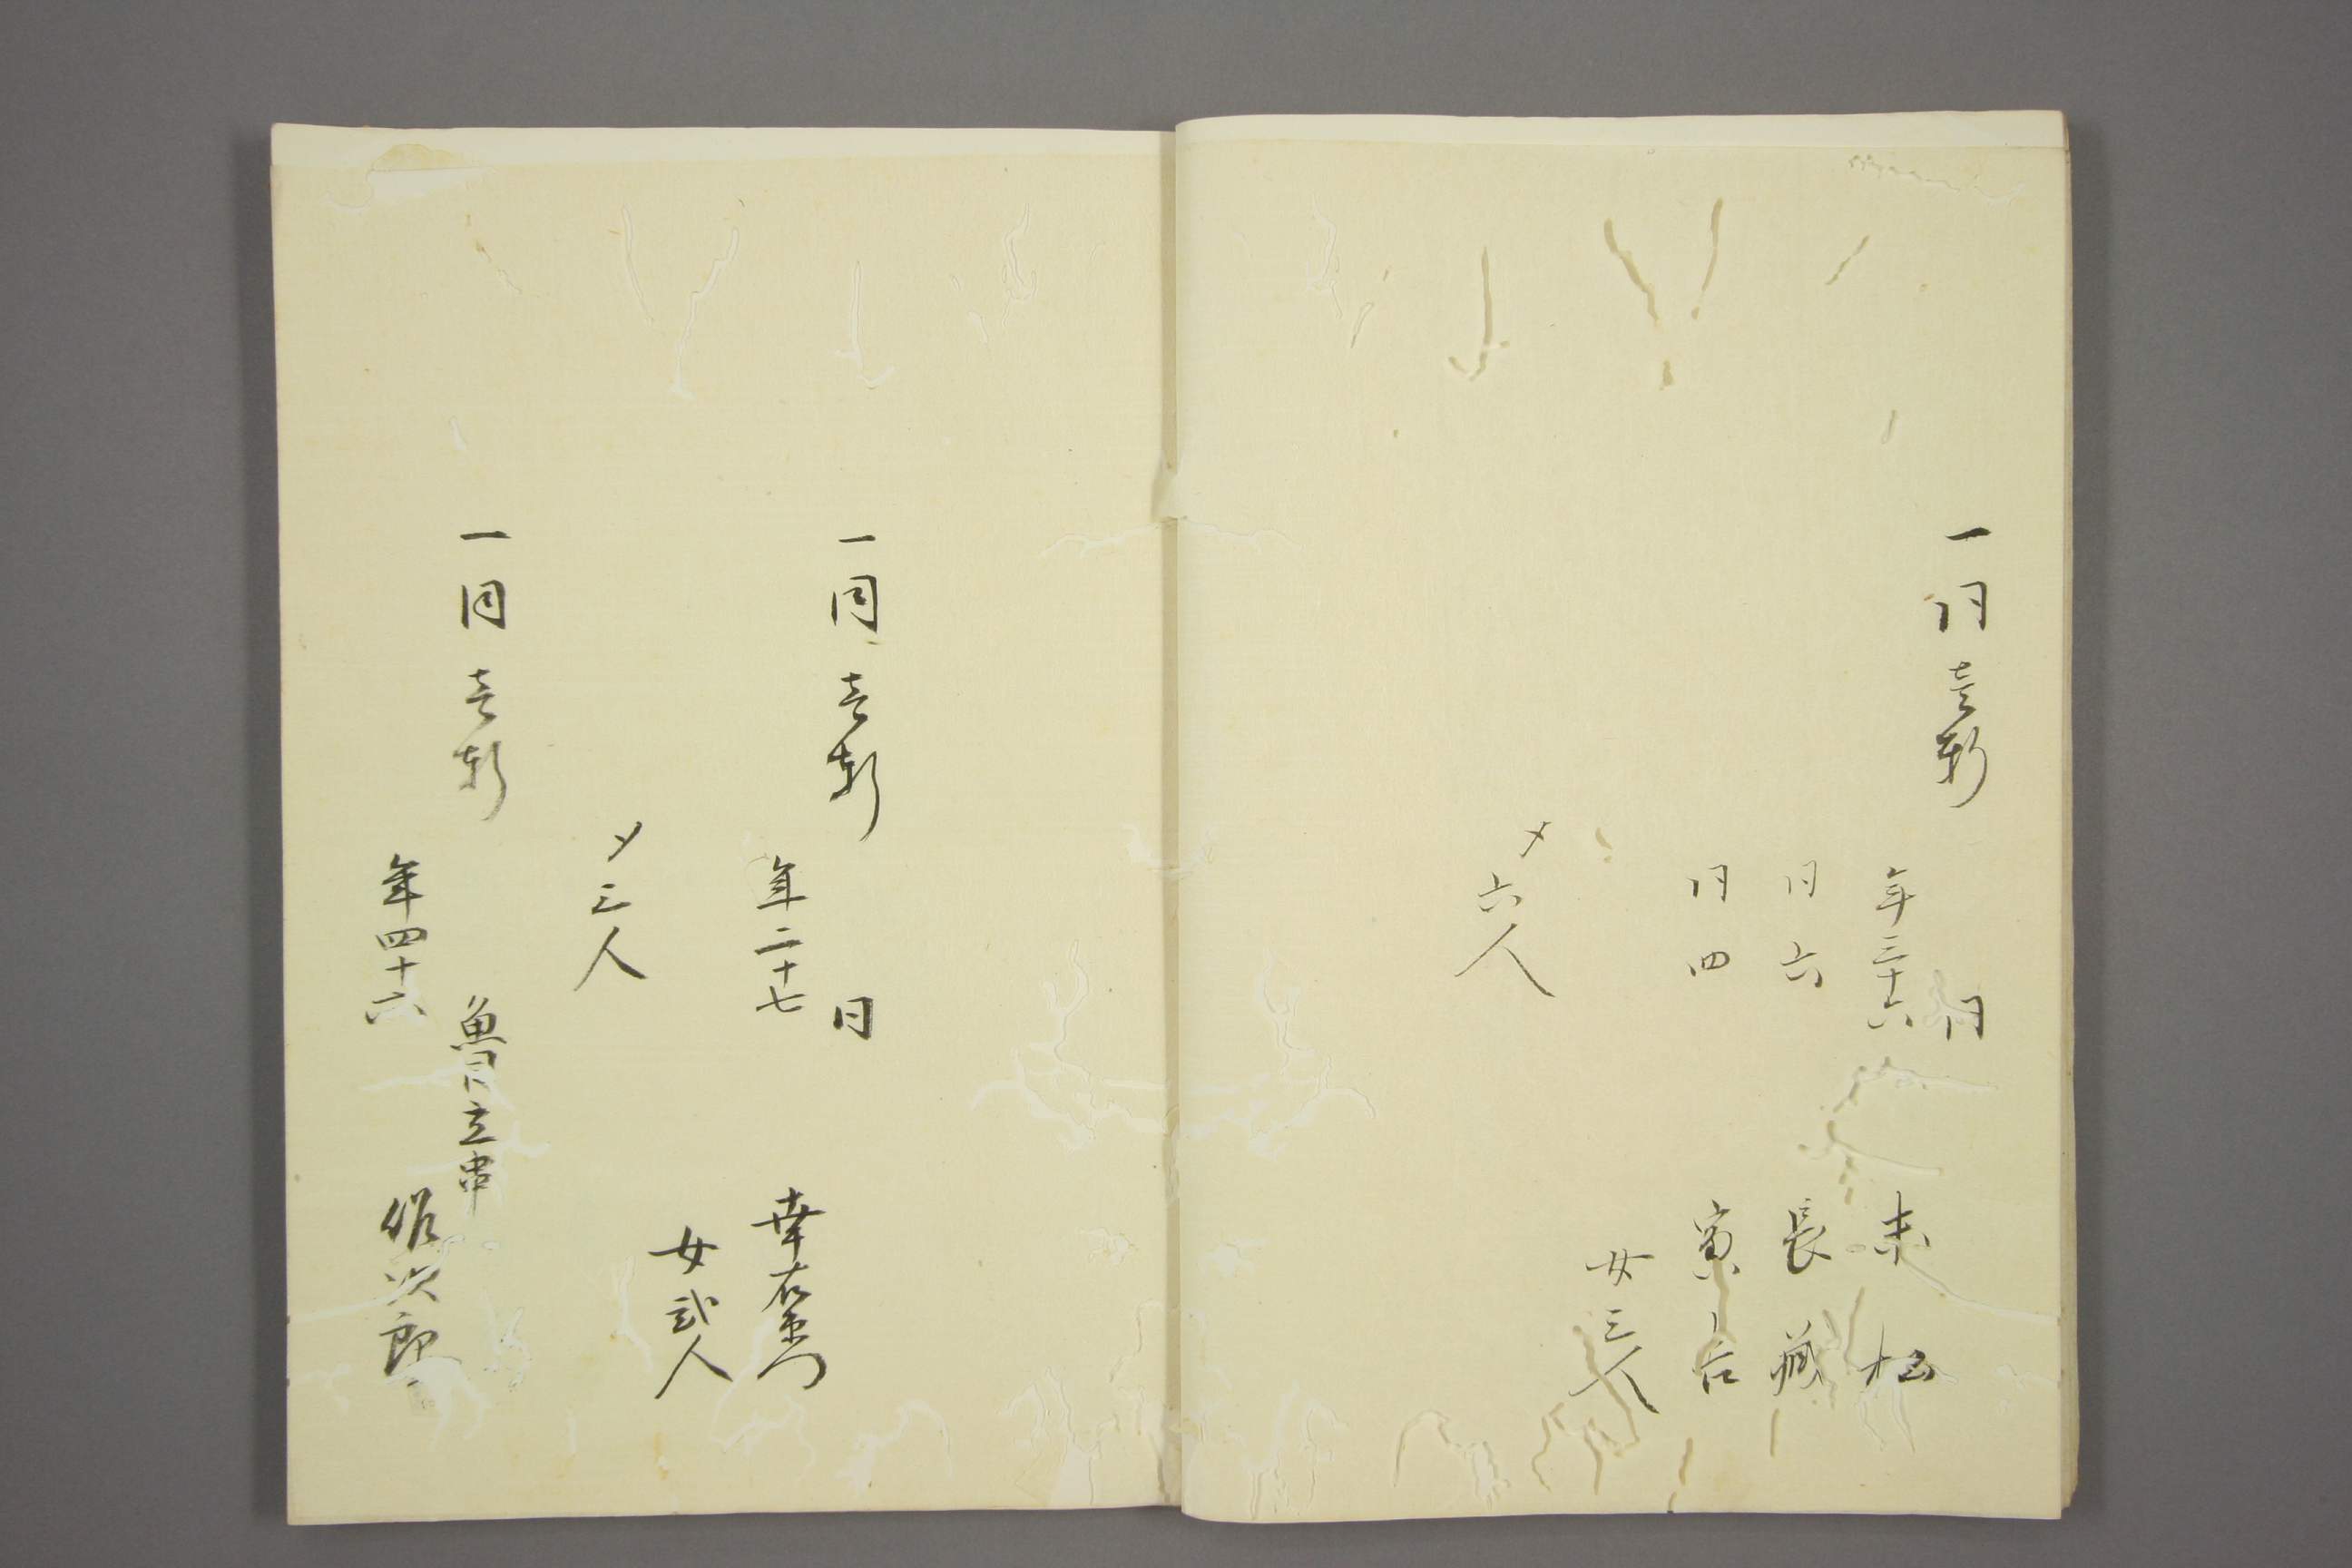 一同壱軒
同
年三十六
末松
同六
長蔵
同四
寅吉
女三人
〆六人
一同壱軒
同
年二十七
幸右衛門
女弐人
〆三人
一同壱軒
魚目立串
年四十六
佐次郎